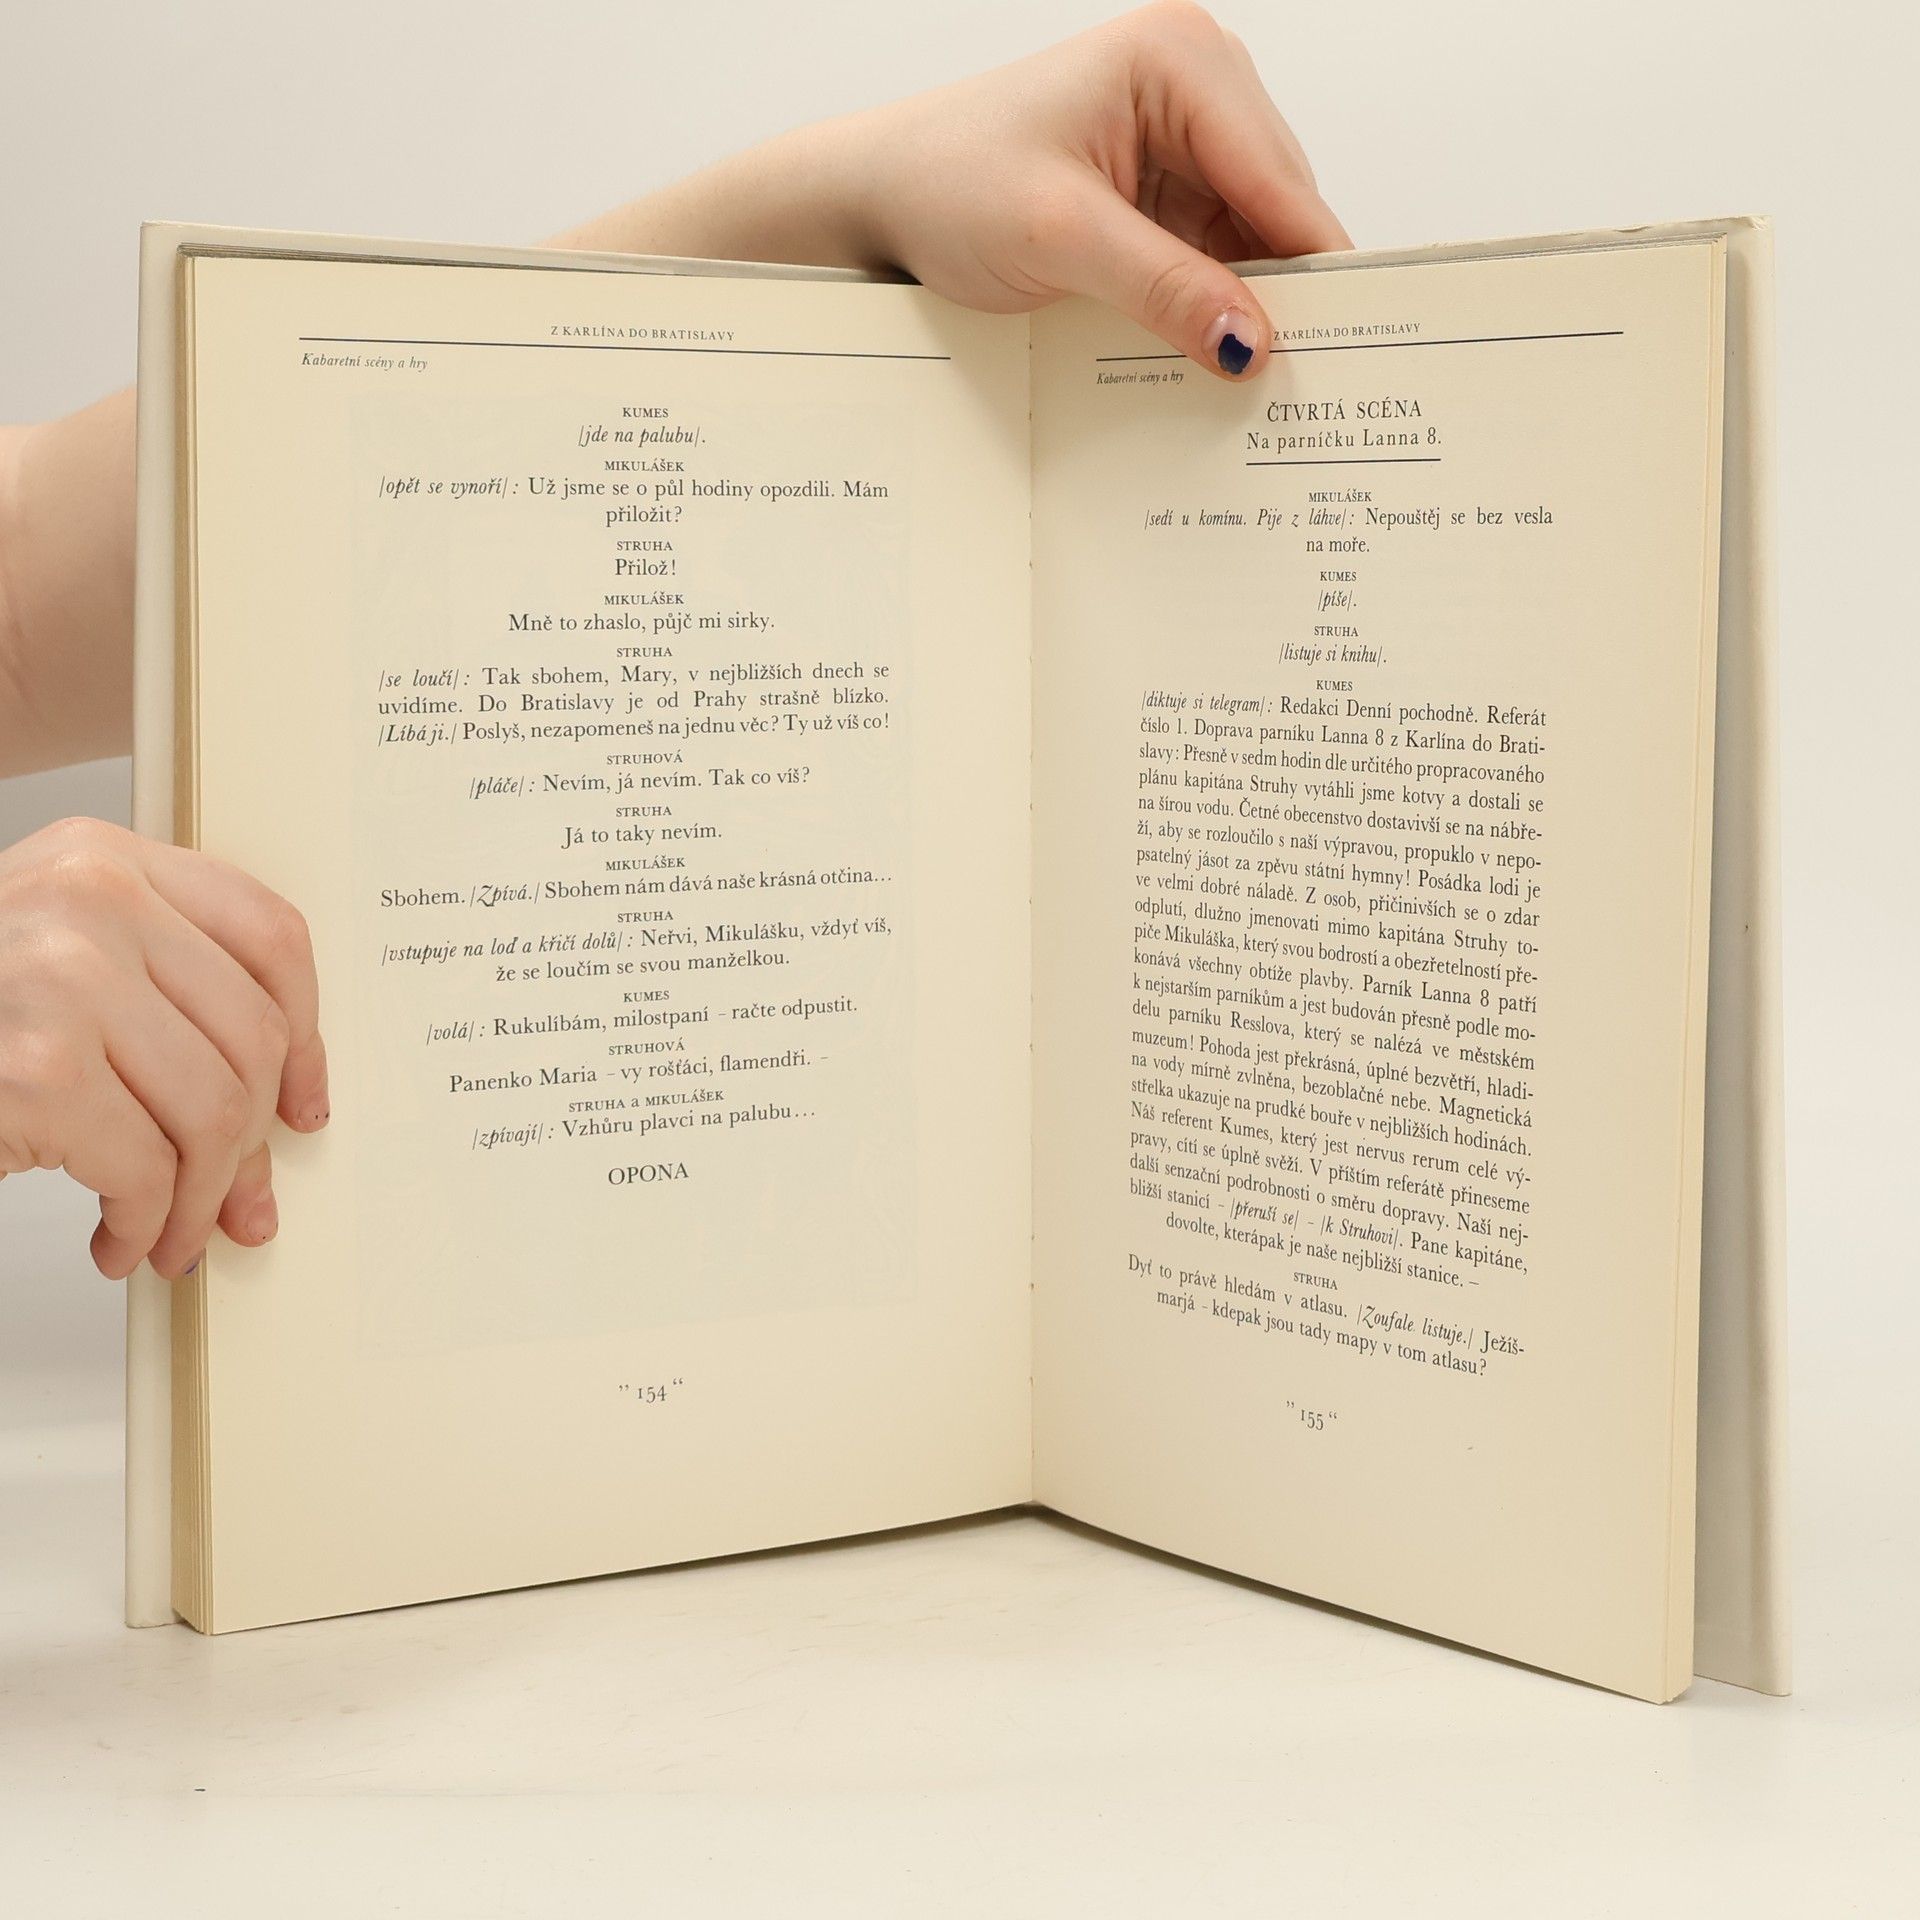 Z KARLÍNA DO BRATISLAVY
Kabaretní scény a hry
KUMES
/jde na palubu/.
MIKULÁŠEK
/opět se vynoří/: Už jsme se o půl hodiny opozdili. Mám
přiložit?
STRUHA
Přilož!
MIKULÁŠEK
Mně to zhaslo, půjč mi sirky.
STRUHA
/se loučí/: Tak sbohem, Mary, v nejbližších dnech se
uvidíme. Do Bratislavy je od Prahy strašně blízko.
/Líbá ji./ Poslyš, nezapomeneš na jednu věc? Ty už víš co!
STRUHOVÁ
/pláče/: Nevím, já nevím. Tak co víš?
STRUHA
Já to taky nevím.
MIKULÁŠEK
Sbohem. /Zpívá./ Sbohem nám dává naše krásná otčina...
STRUHA
/vstupuje na loď a křičí dolů/: Neřvi, Mikulášku, vždyť víš,
že se loučím se svou manželkou.
KUMES
/volá/: Rukulíbám, milostpaní – račte odpustit.
STRUHOVÁ
Panenko Maria – vy rošťáci, flamendři. –
STRUHA a MIKULÁŠEK
/zpívají/: Vzhůru plavci na palubu...
OPONA
” 154 “
Z KARLÍNA DO BRATISLAVY
Kabaretní scény a hry
ČTVRTÁ SCÉNA
Na parníčku Lanna 8.
MIKULÁŠEK
/sedí u komínu. Pije z láhve/: Nepouštěj se bez vesla
na moře.
KUMES
/píše/.
STRUHA
/listuje si knihu/.
KUMES
/diktuje si telegram/: Redakci Denní pochodně. Referát
číslo 1. Doprava parníku Lanna 8 z Karlína do Brati-
slavy: Přesně v sedm hodin dle určitého propracovaného
plánu kapitána Struhy vytáhli jsme kotvy a dostali se
na šírou vodu. Četné obecenstvo dostavivší se na nábře-
ží, aby se rozloučilo s naší výpravou, propuklo v nepo-
psatelný jásot za zpěvu státní hymny! Posádka lodi je
ve velmi dobré náladě. Z osob, přičinivších se o zdar
odplutí, dlužno jmenovati mimo kapitána Struhy to-
piče Mikuláška, který svou bodrostí a obezřetelností pře-
konává všechny obtíže plavby. Parník Lanna 8 patří
k nejstarším parníkům a jest budován přesně podle mo-
delu parníku Resslova, který se nalézá ve městském
muzeum! Pohoda jest překrásná, úplné bezvětří, hladi-
na vody mírně zvlněna, bezoblačné nebe. Magnetická
střelka ukazuje na prudké bouře v nejbližších hodinách.
Náš referent Kumes, který jest nervus rerum celé vý-
pravy, cítí se úplně svěží. V příštím referátě přineseme
další senzační podrobnosti o směru dopravy. Naší nej-
bližší stanicí – /přeruší se/ – /k Struhovi/. Pane kapitáne,
dovolte, kterápak je naše nejbližší stanice. –
STRUHA
Dyť to právě hledám v atlasu. /Zoufale listuje./ Ježíš-
marjá – kdepak jsou tady mapy v tom atlasu?
” 155 “